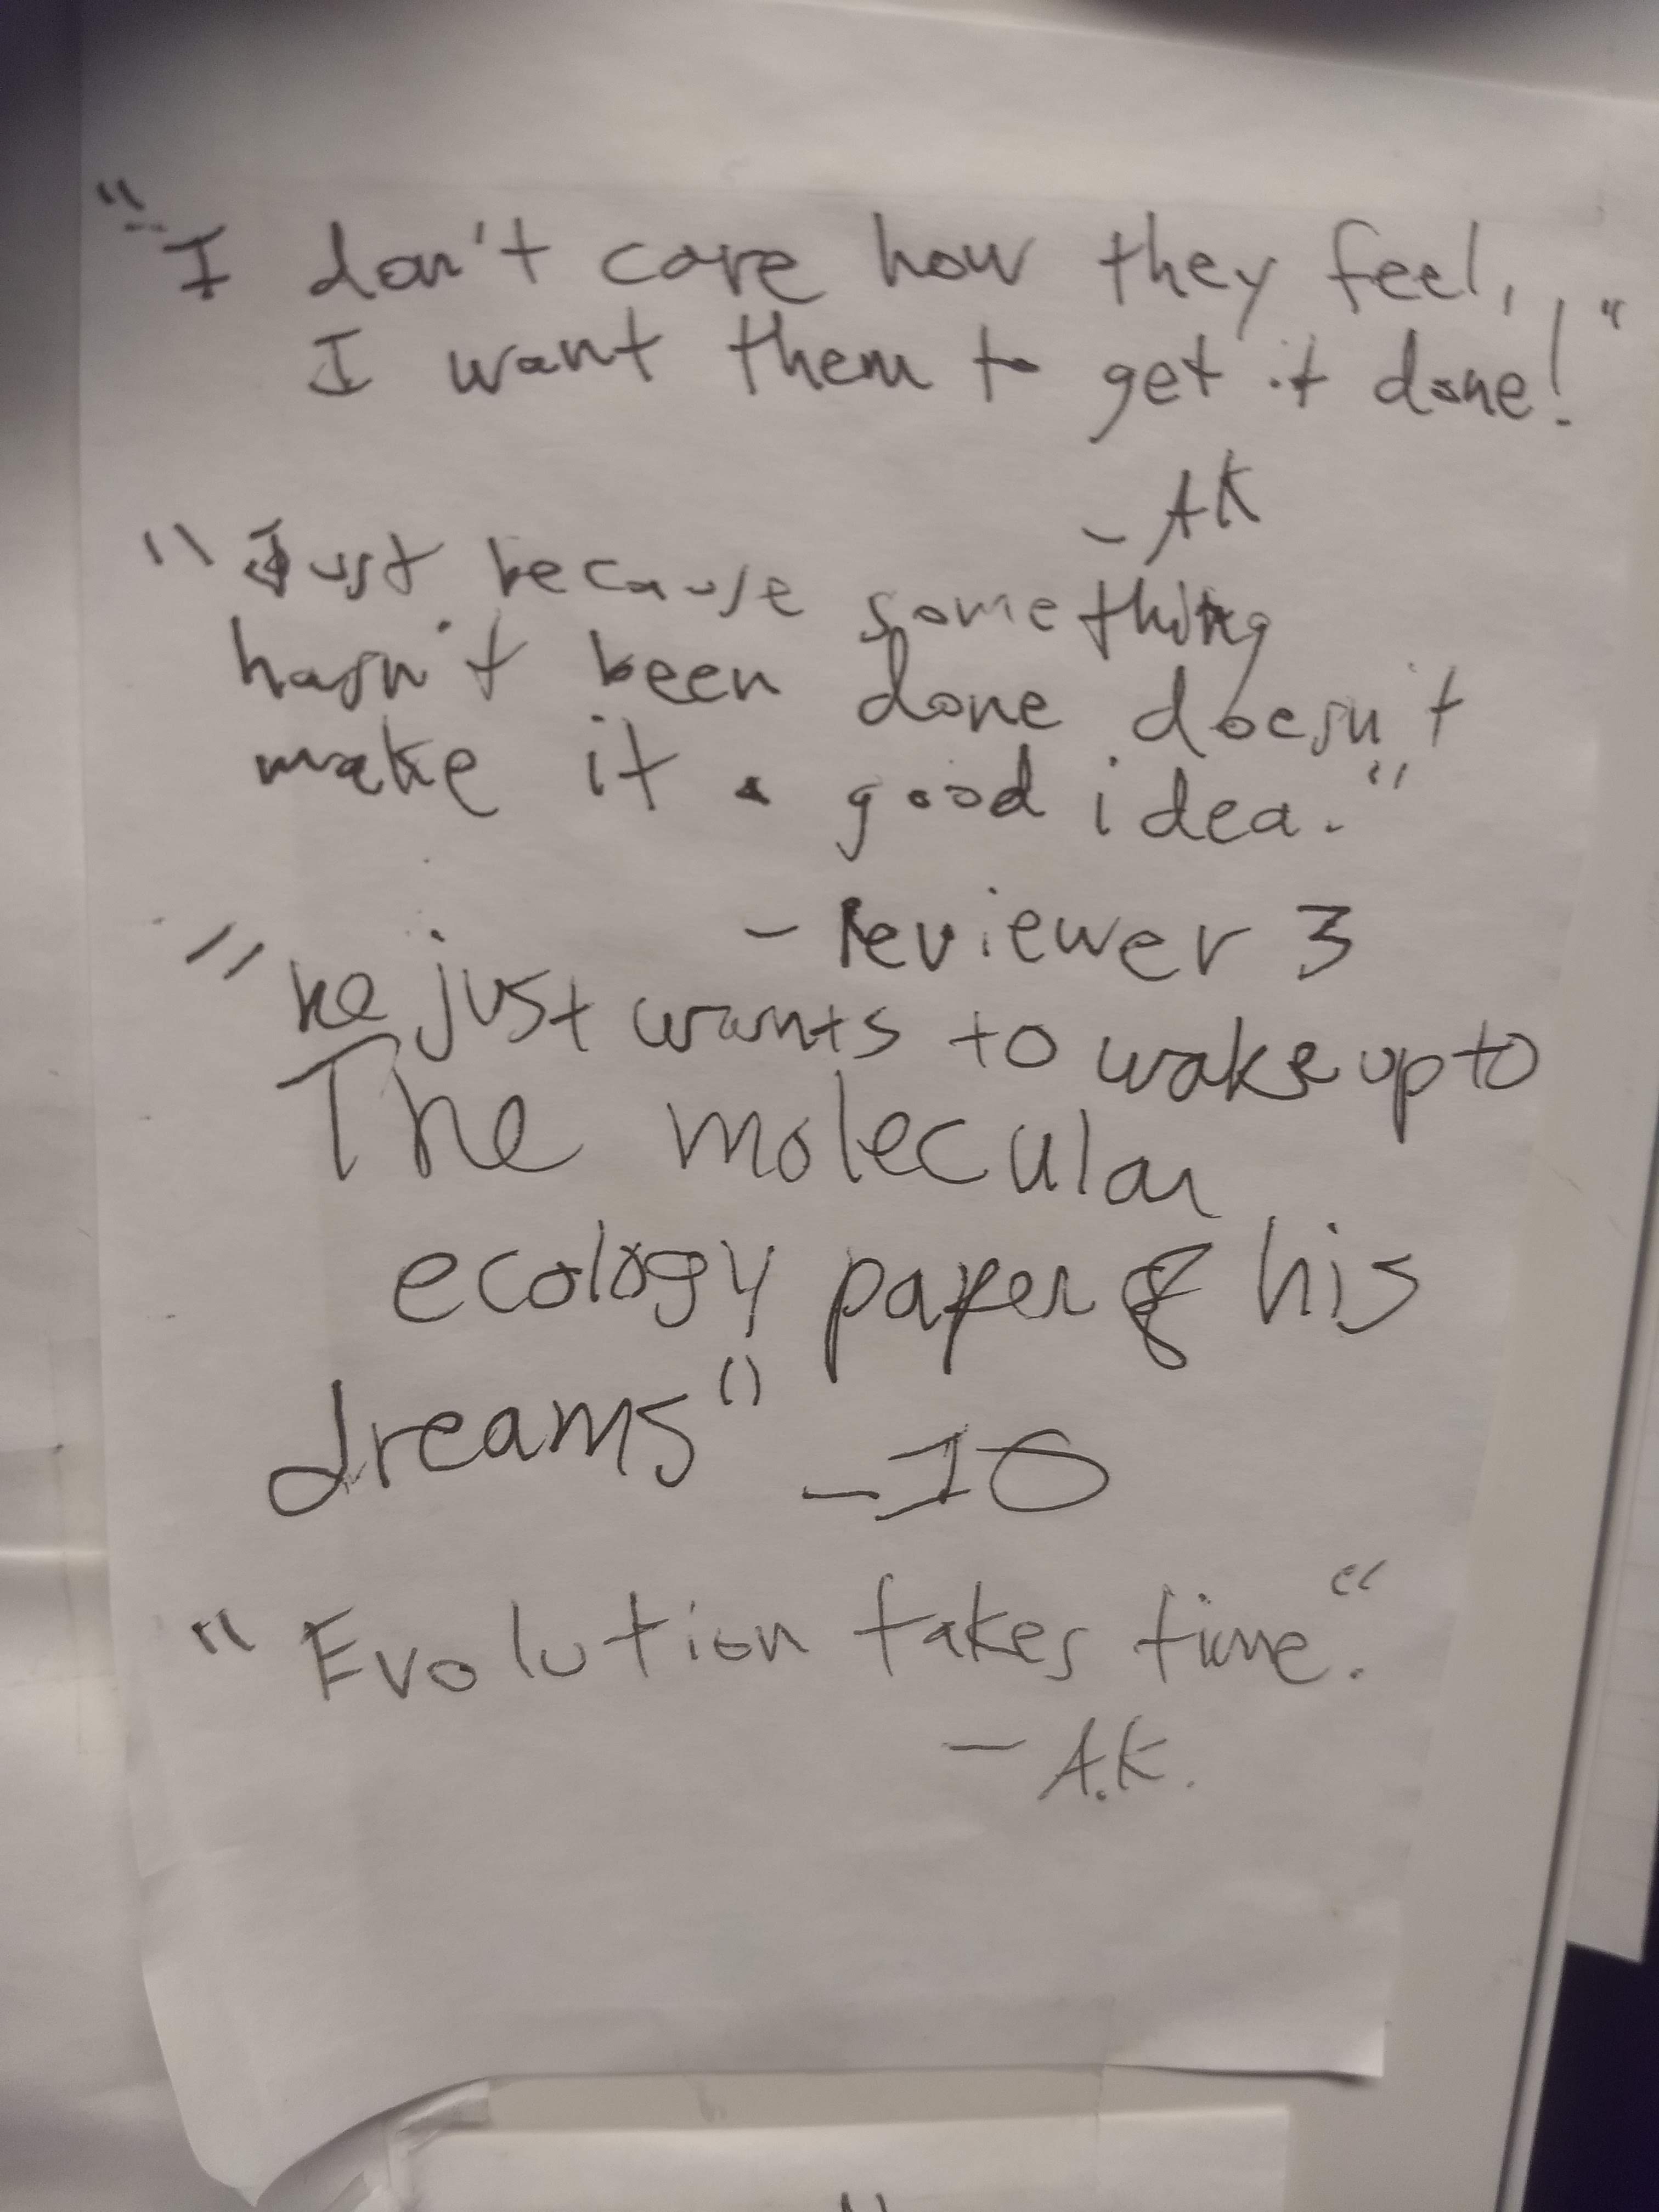 "I don't care how they feel,
I want them to get it done!"
- AK
"Just because something
hasn't been done doesn't
make it a good idea."
- Reviewer 3
"he just wants to wake up to
The molecular
ecology paper of his
dreams" - JO
"Evolution takes time."
- A.K.